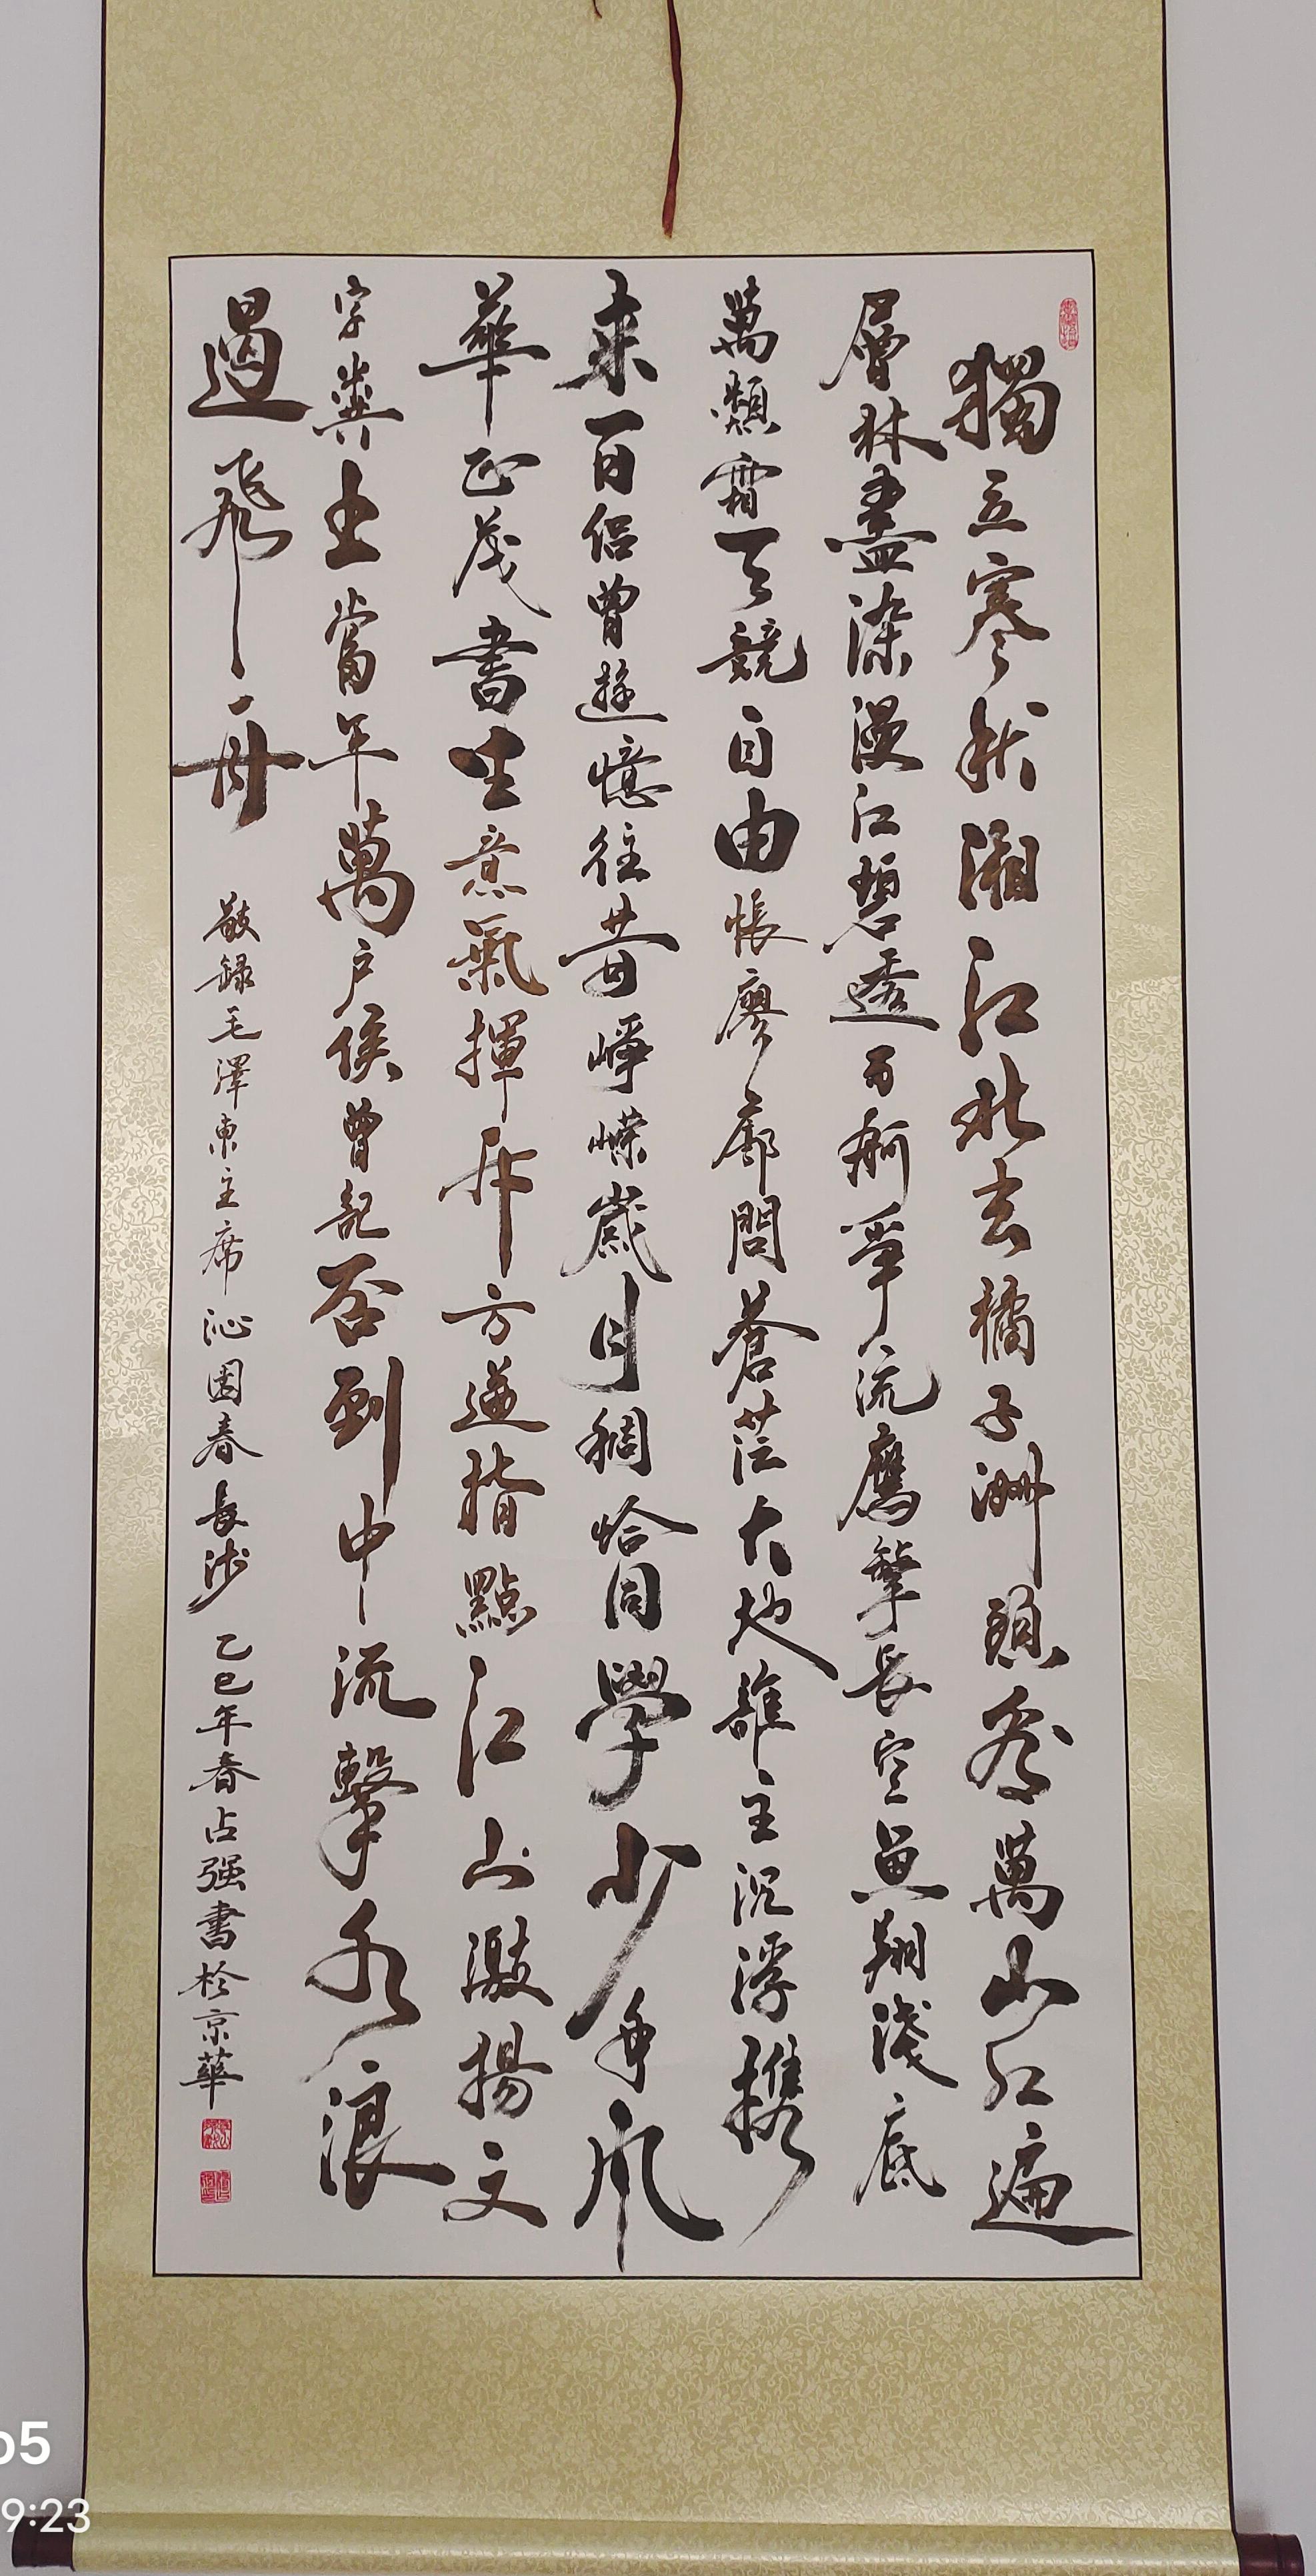 獨立寒秋湘江北去橘子洲頭看萬山紅遍
層林盡染漫江碧透百舸爭流鷹擊長空魚翔淺底
萬類霜天競自由悵廖廓問蒼茫大地誰主沉浮携
來百侶曾遊憶往昔崢嶸歲月稠恰同學少年風
華正茂書生意氣揮斥方遒指點江山激揚文
字糞土當年萬戶侯曾記否到中流擊水浪
遏飛舟
敬録毛澤東主席沁園春長沙乙巳年春占强書於京華
o5
9:23